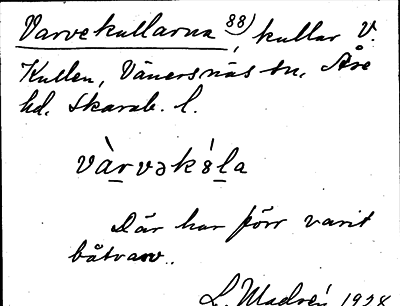 Varvekullarna 88), kullar V.
Kullen, Vänersnäs sn, Åse
hd. Skarab. l.
và̱rvək
Där har förr varit
båtvarv.
1928